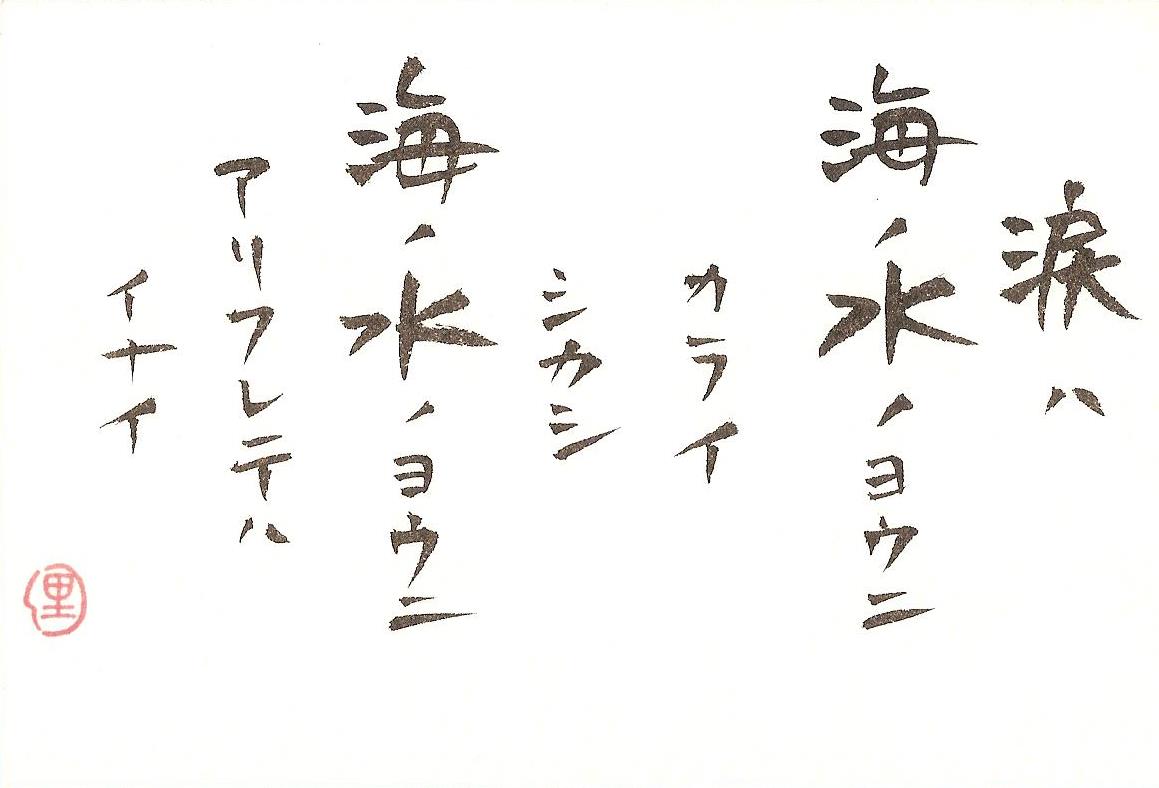 涙ハ
海ノ水ノヨウニ
カライ
シカシ
海ノ水ノヨウニ
アリフレテハ
イナイ
里